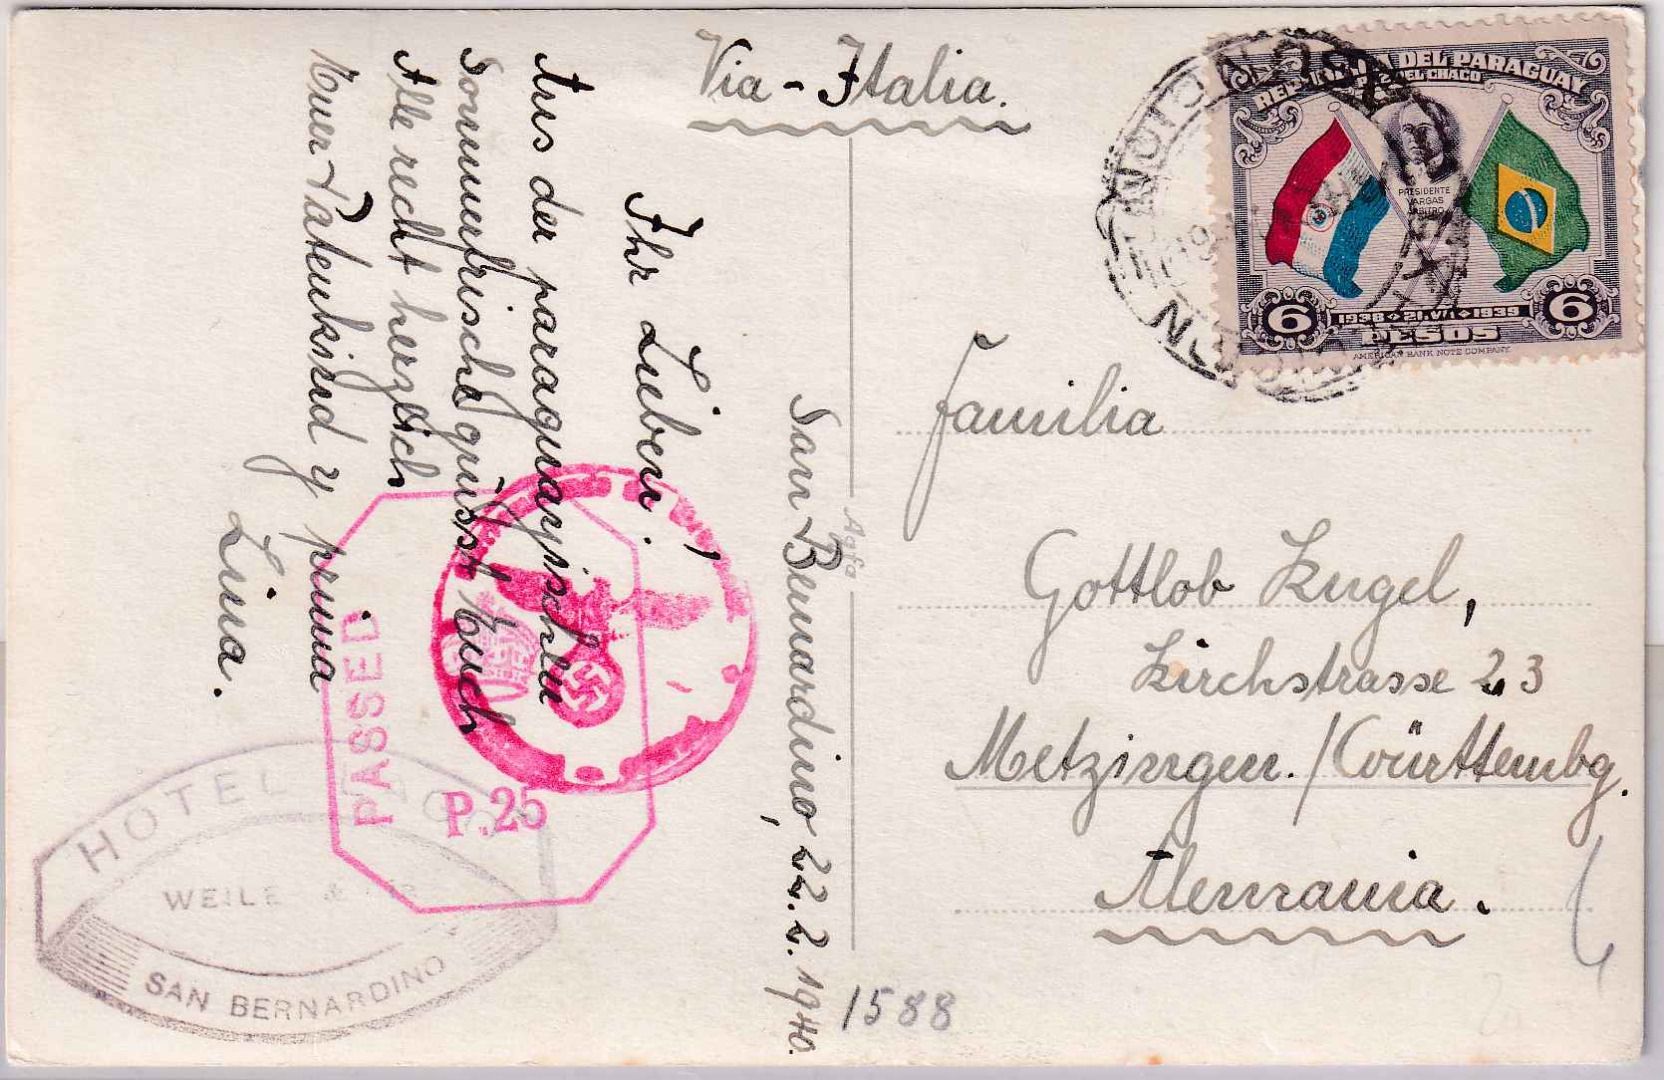 Via-Italia.
REP. DEL PARAGUAY
PAZ DEL CHACO
PRESIDENTE
VARGAS
6 1938 21.VII 1939 6
PESOS
AMERICAN BANK NOTE COMPANY
Familia
Gottlob Kugel,
Kirchstrasse 23
Metzingen./Württembg.
Alemania.
1588
Agfa
San Bernardino, 22.2.1940.
Ihr Lieben!
Aus der paraguayischen
Sommerfrische grüsst Euch
Alle recht herzlich
Euer Patenkind y prima
Lina.
PASSED
P.25
HOTEL
WEILE
SAN BERNARDINO